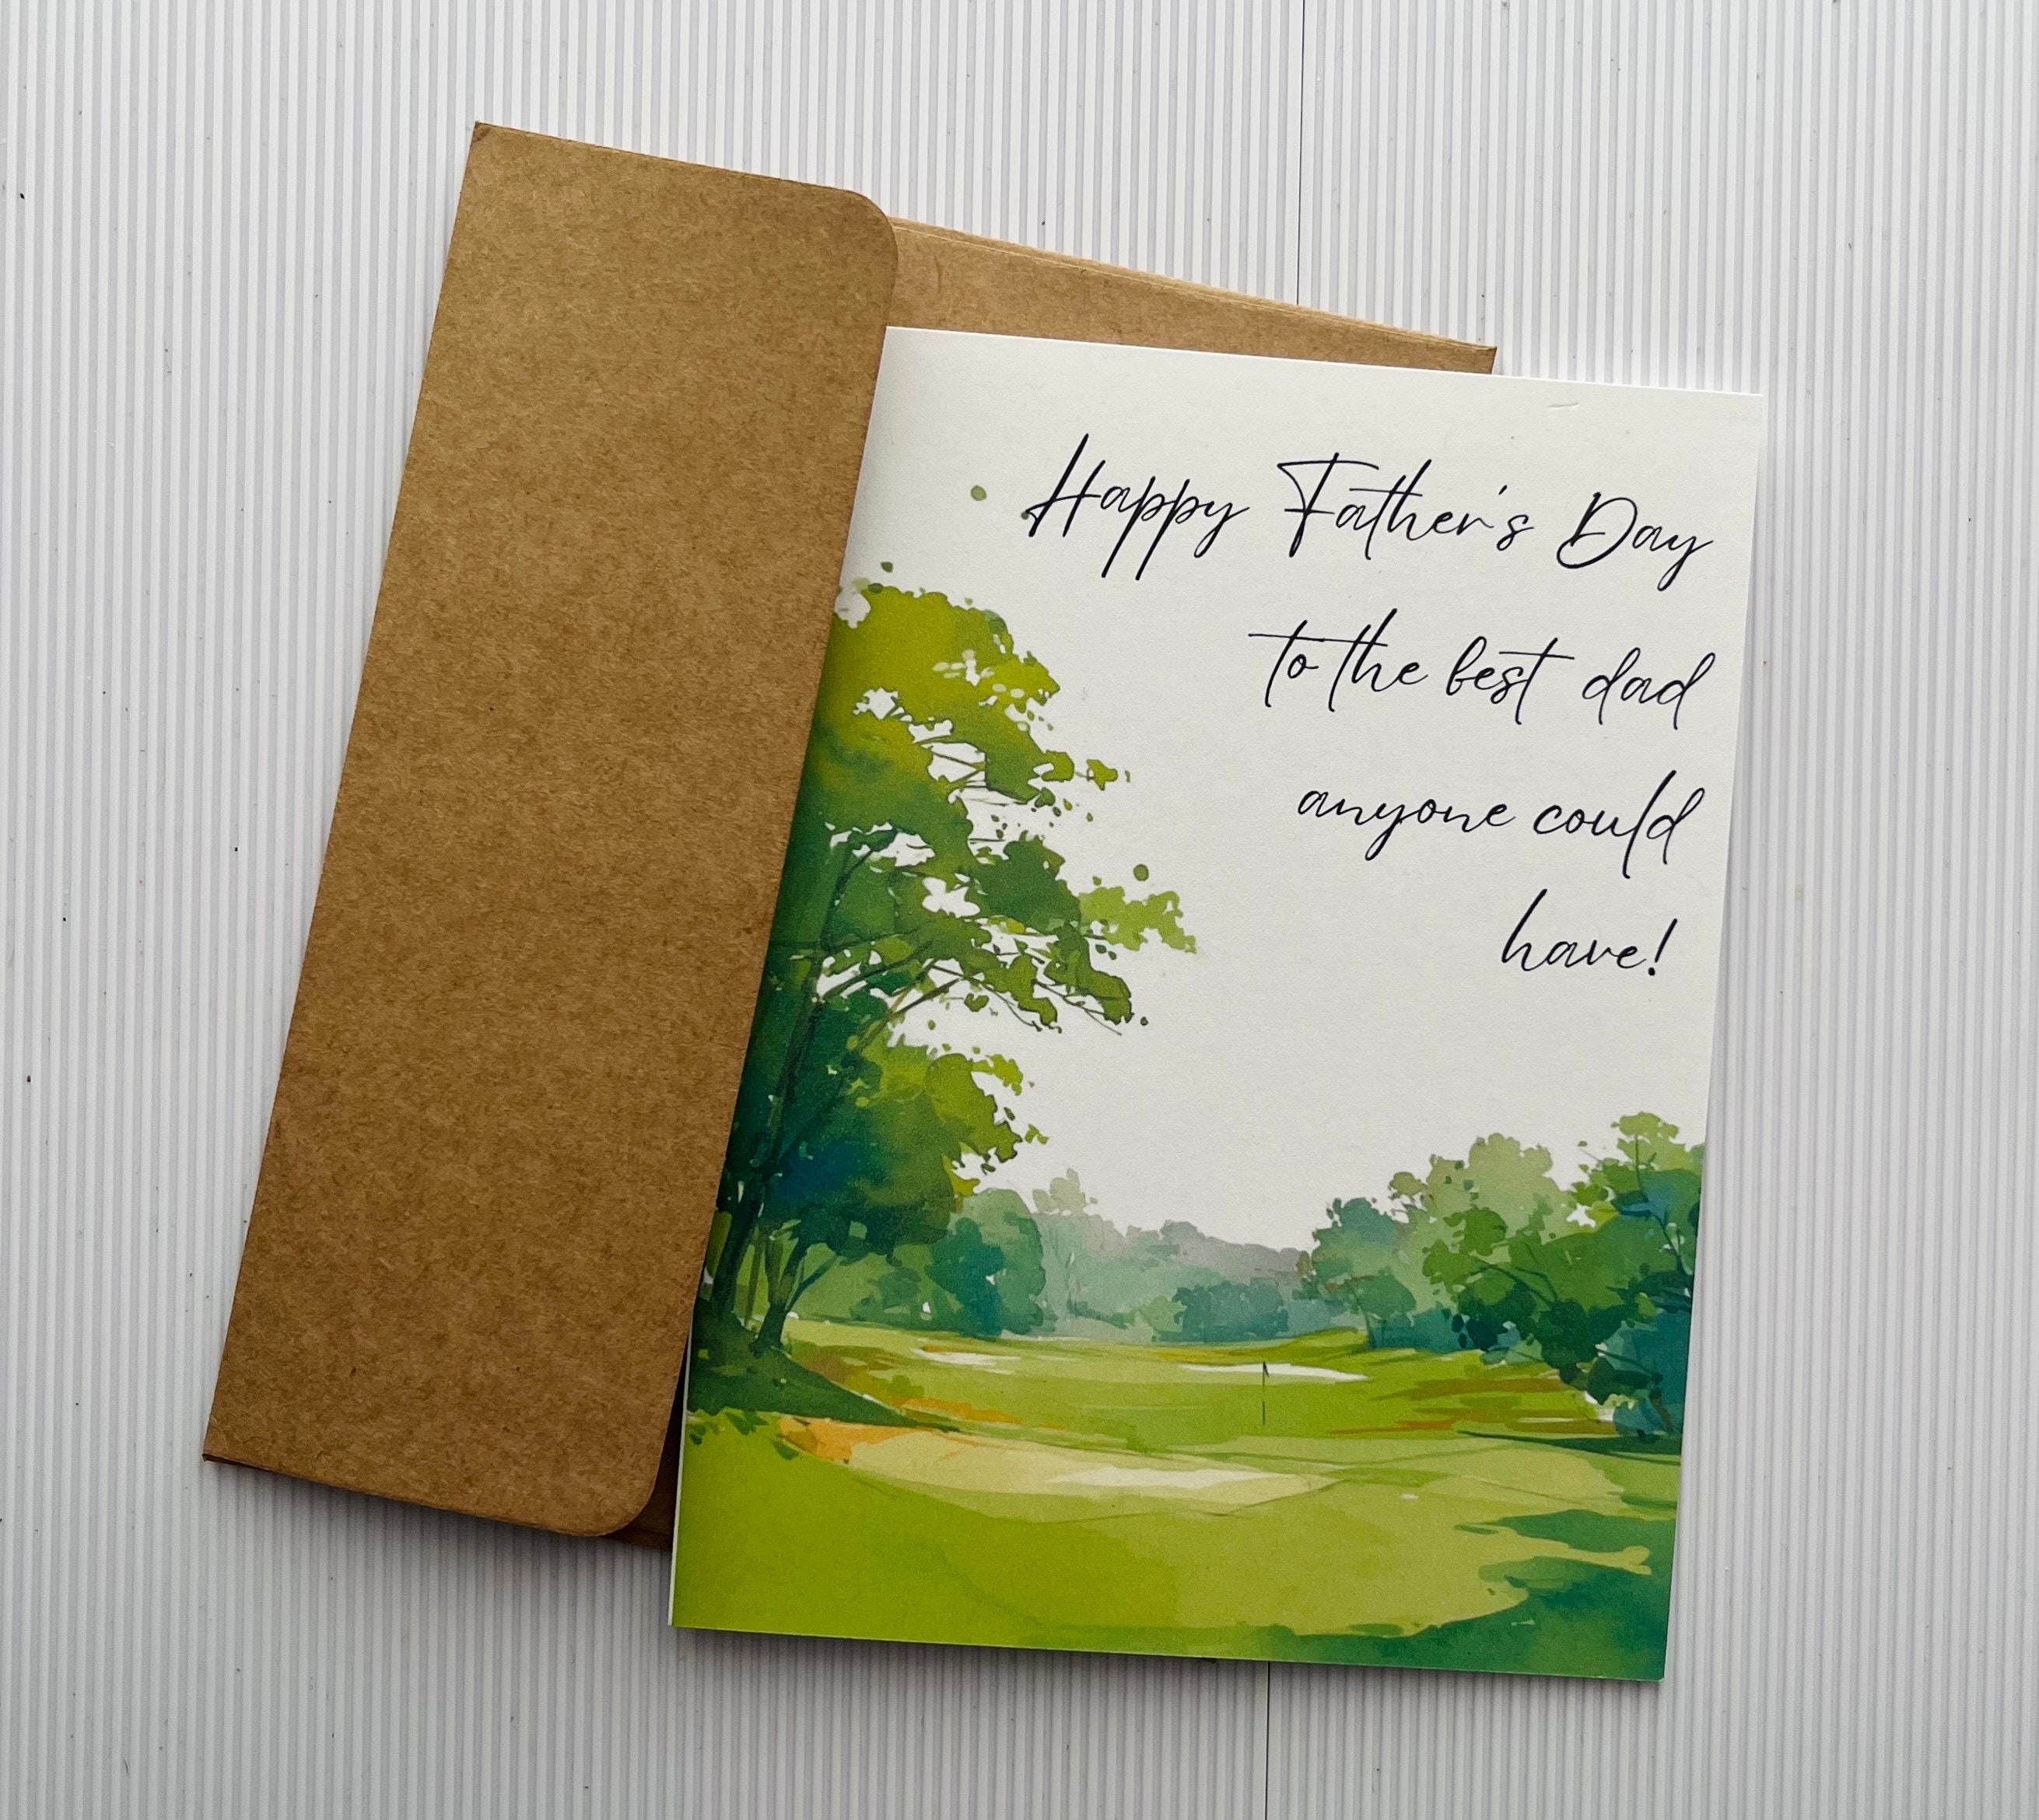 Happy Father's Day
to the best dad
anyone could
have!